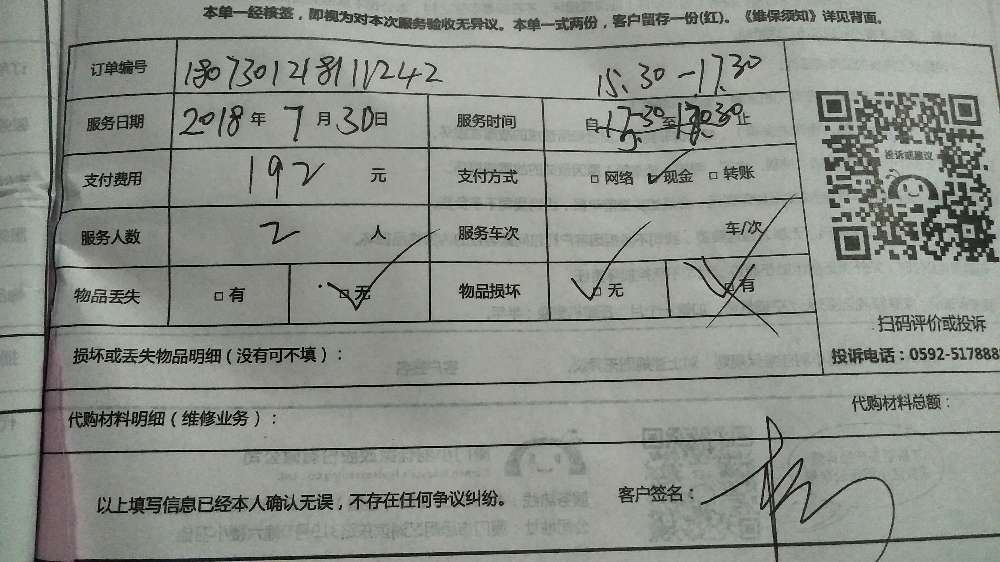 本单一经核签，即视为对本次服务验收无异议。本单一式两份，客户留存一份(红)。《维保须知》详见背面。
订单编号 180730121811242 15:30-17:30
服务日期 2018年7月30日 服务时间 自 至 止
支付费用 192 元 支付方式 □网络 ☑现金 □转账
投诉或建议
服务人数 2 人 服务车次 车/次
物品丢失 □有 ☑无 物品损坏 ☑无 □有
扫码评价或投诉
损坏或丢失物品明细（没有可不填）：
投诉电话：0592-517888
代购材料明细（维修业务）：
代购材料总额：
以上填写信息已经本人确认无误，不存在任何争议纠纷。
客户签名：